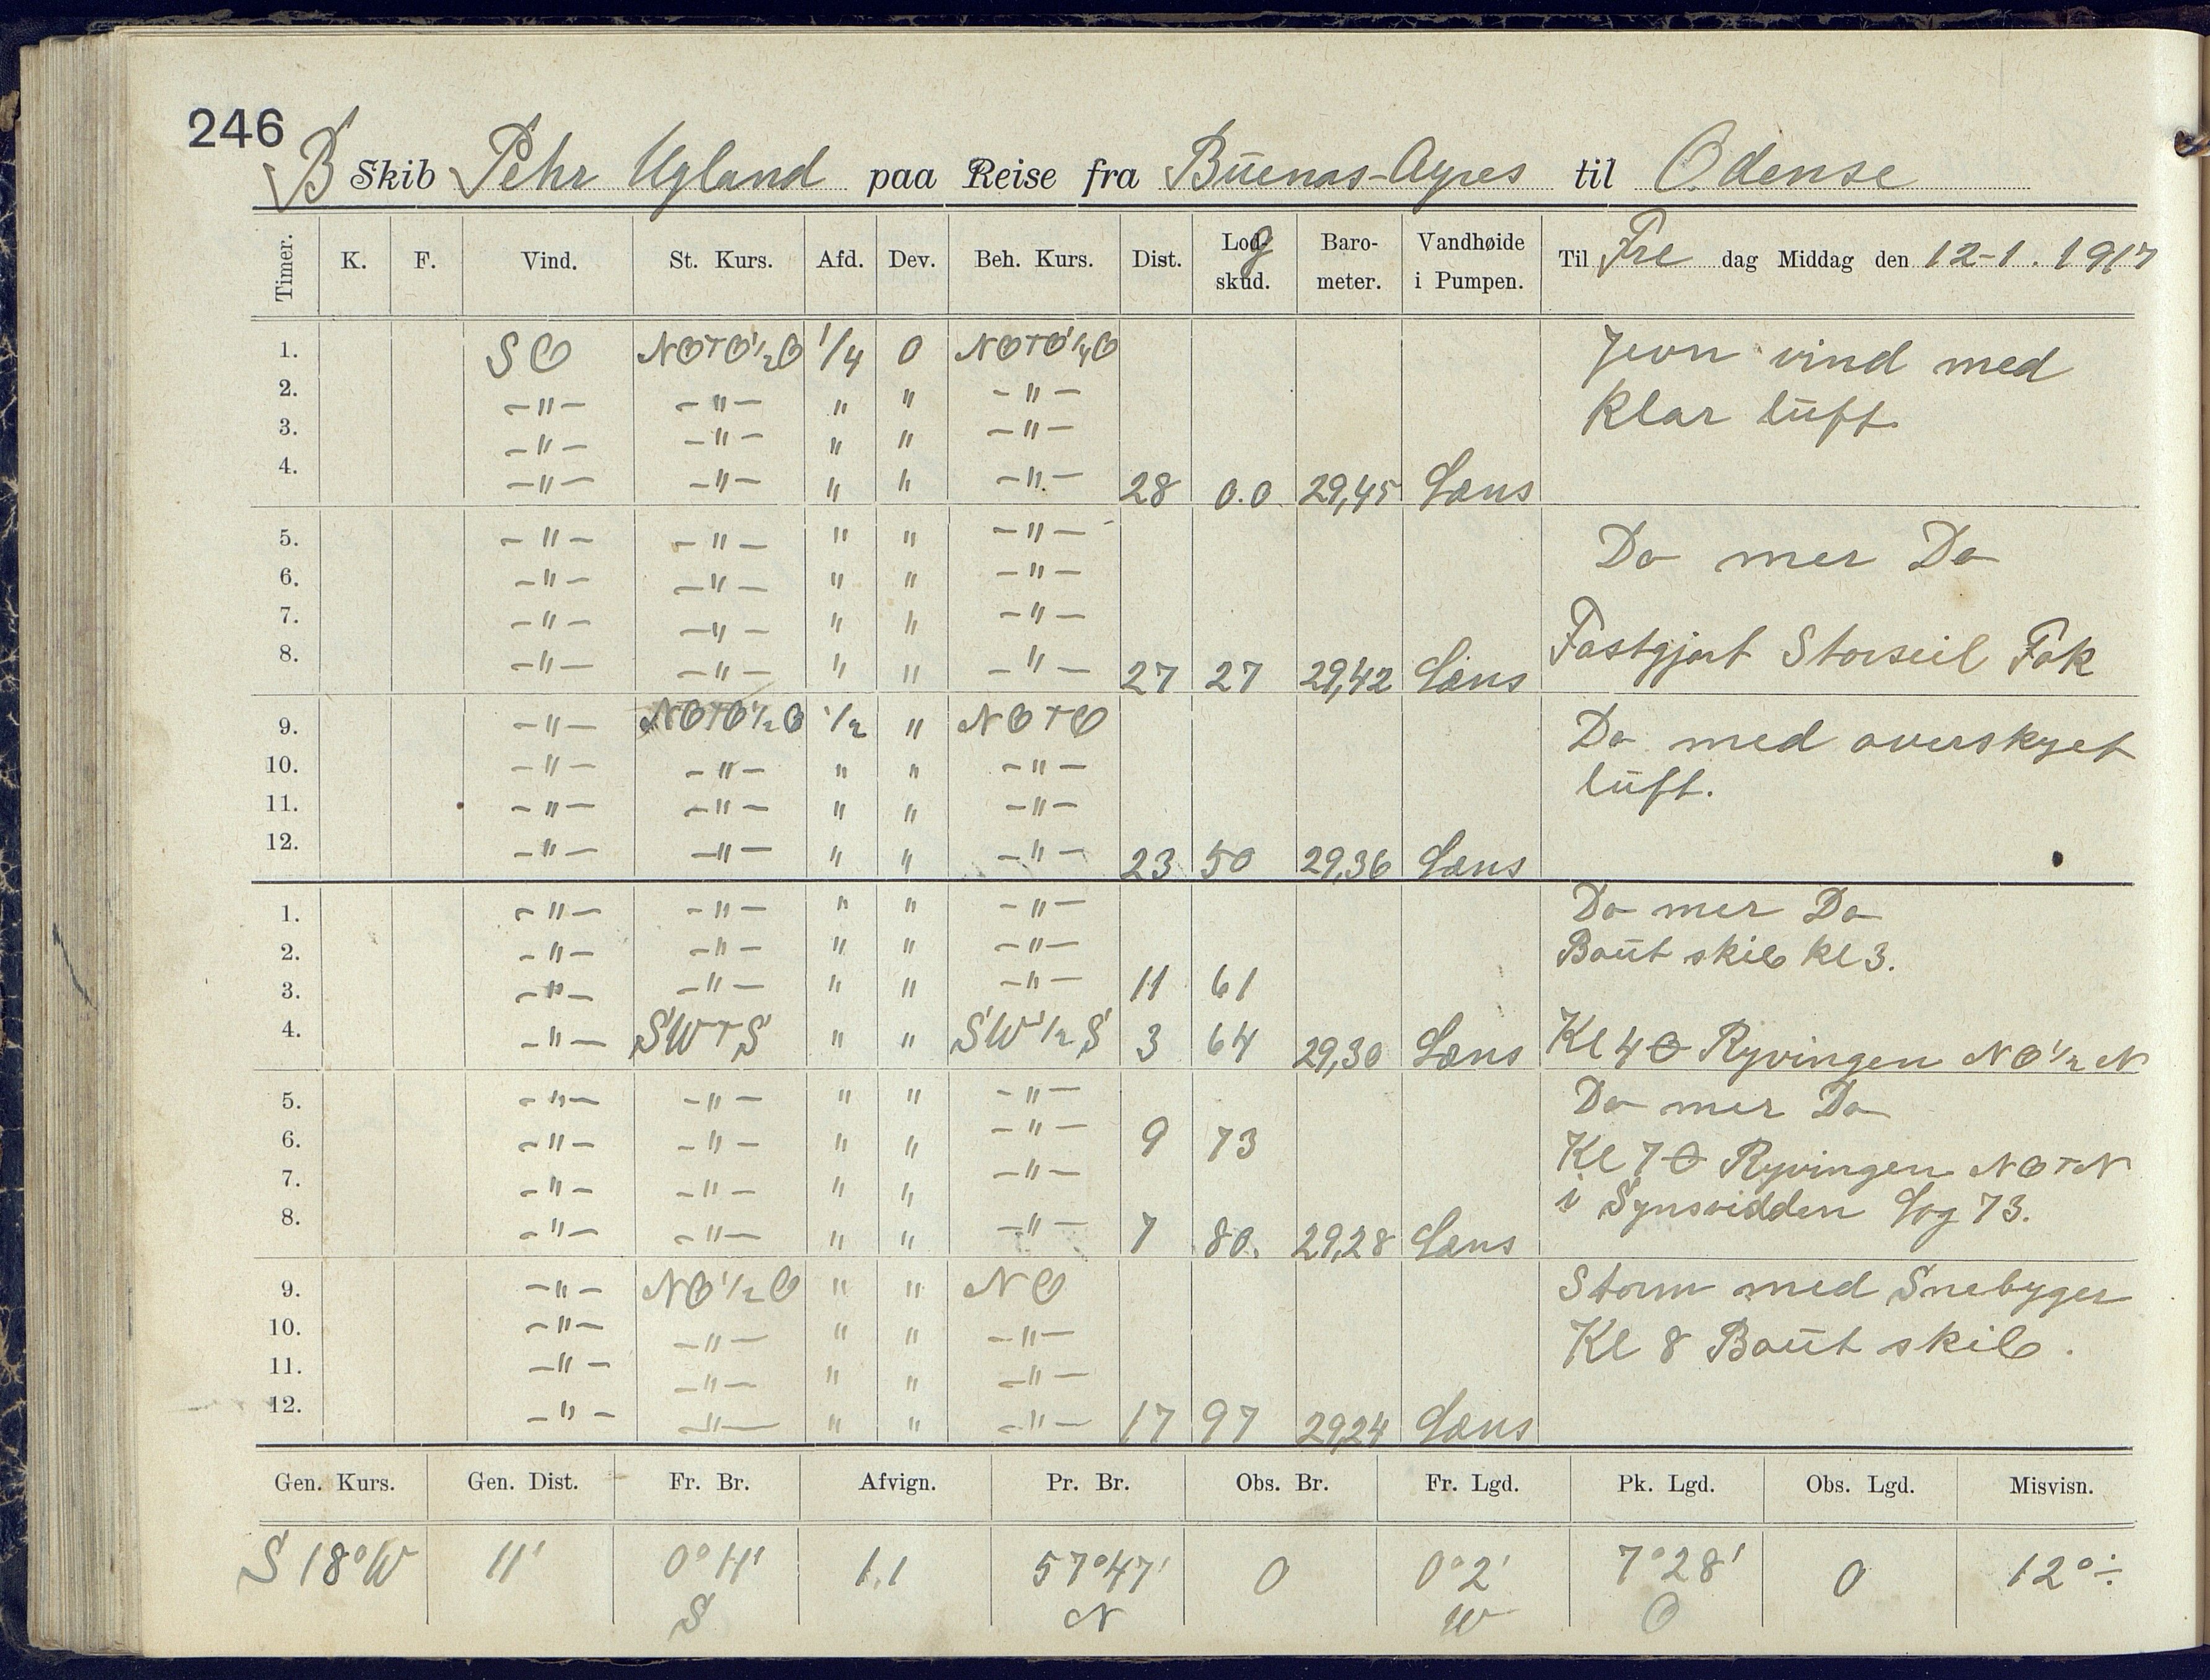 246
B Skib Pehr Ugland paa Reise fra Buenas-Ayres til Odense
Timer. K. F. Vind. St. Kurs. Afd. Dev. Beh. Kurs. Dist. Lodg skud. Baro-meter. Vandhøide i Pumpen. Til Fre dag Middag den 12-1. 1917
1. SO NOTO½O ¼ 0 NOTO¼O Jevn vind med
2. -"- -"- " " -"- Klar luft.
3. -"- -"- " " -"-
4. -"- -"- " " -"- 28 0.0 29,45 Læns
5. -"- -"- " " -"- Do mer Do
6. -"- -"- " " -"-
7. -"- -"- " " -"-
8. -"- -"- " " -"- 27 27 29,42 Læns Fastgjort Storseil Fok
9. -"- NOTO½O ½ " NOTO Do med overskyet
10. -"- -"- " " -"- luft.
11. -"- -"- " " -"-
12. -"- -"- " " -"- 23 50 29,36 Læns
1. -"- -"- " " -"- Do mer Do
2. -"- -"- " " -"- Baut skib kl 3.
3. -"- -"- " " -"- 11 61
4. -"- SWTS " " SW½S 3 64 29,30 Læns Kl 4 Ryvingen NO½N
5. -"- -"- " " -"- Do mer Do
6. -"- -"- " " -"- 9 73
7. -"- -"- " " -"- Kl 7 Ryvingen NOTN
8. -"- -"- " " -"- 7 80. 29,28 Læns i Synsvidden Log 73.
9. -"- NO½O " " NO Storm med Snebyger
10. -"- -"- " " -"- Kl 8 Baut skib.
11. -"- -"- " " -"-
12. -"- -"- " " -"- 17 97 29,24 Læns
Gen. Kurs. Gen. Dist. Fr. Br. Afvign. Pr. Br. Obs. Br. Fr. Lgd. Pk. Lgd. Obs. Lgd. Misvisn.
S 18°W 11' 0°11' 1.1 57°47' 0 0°2' 7°28' 0 12°÷
S N W O